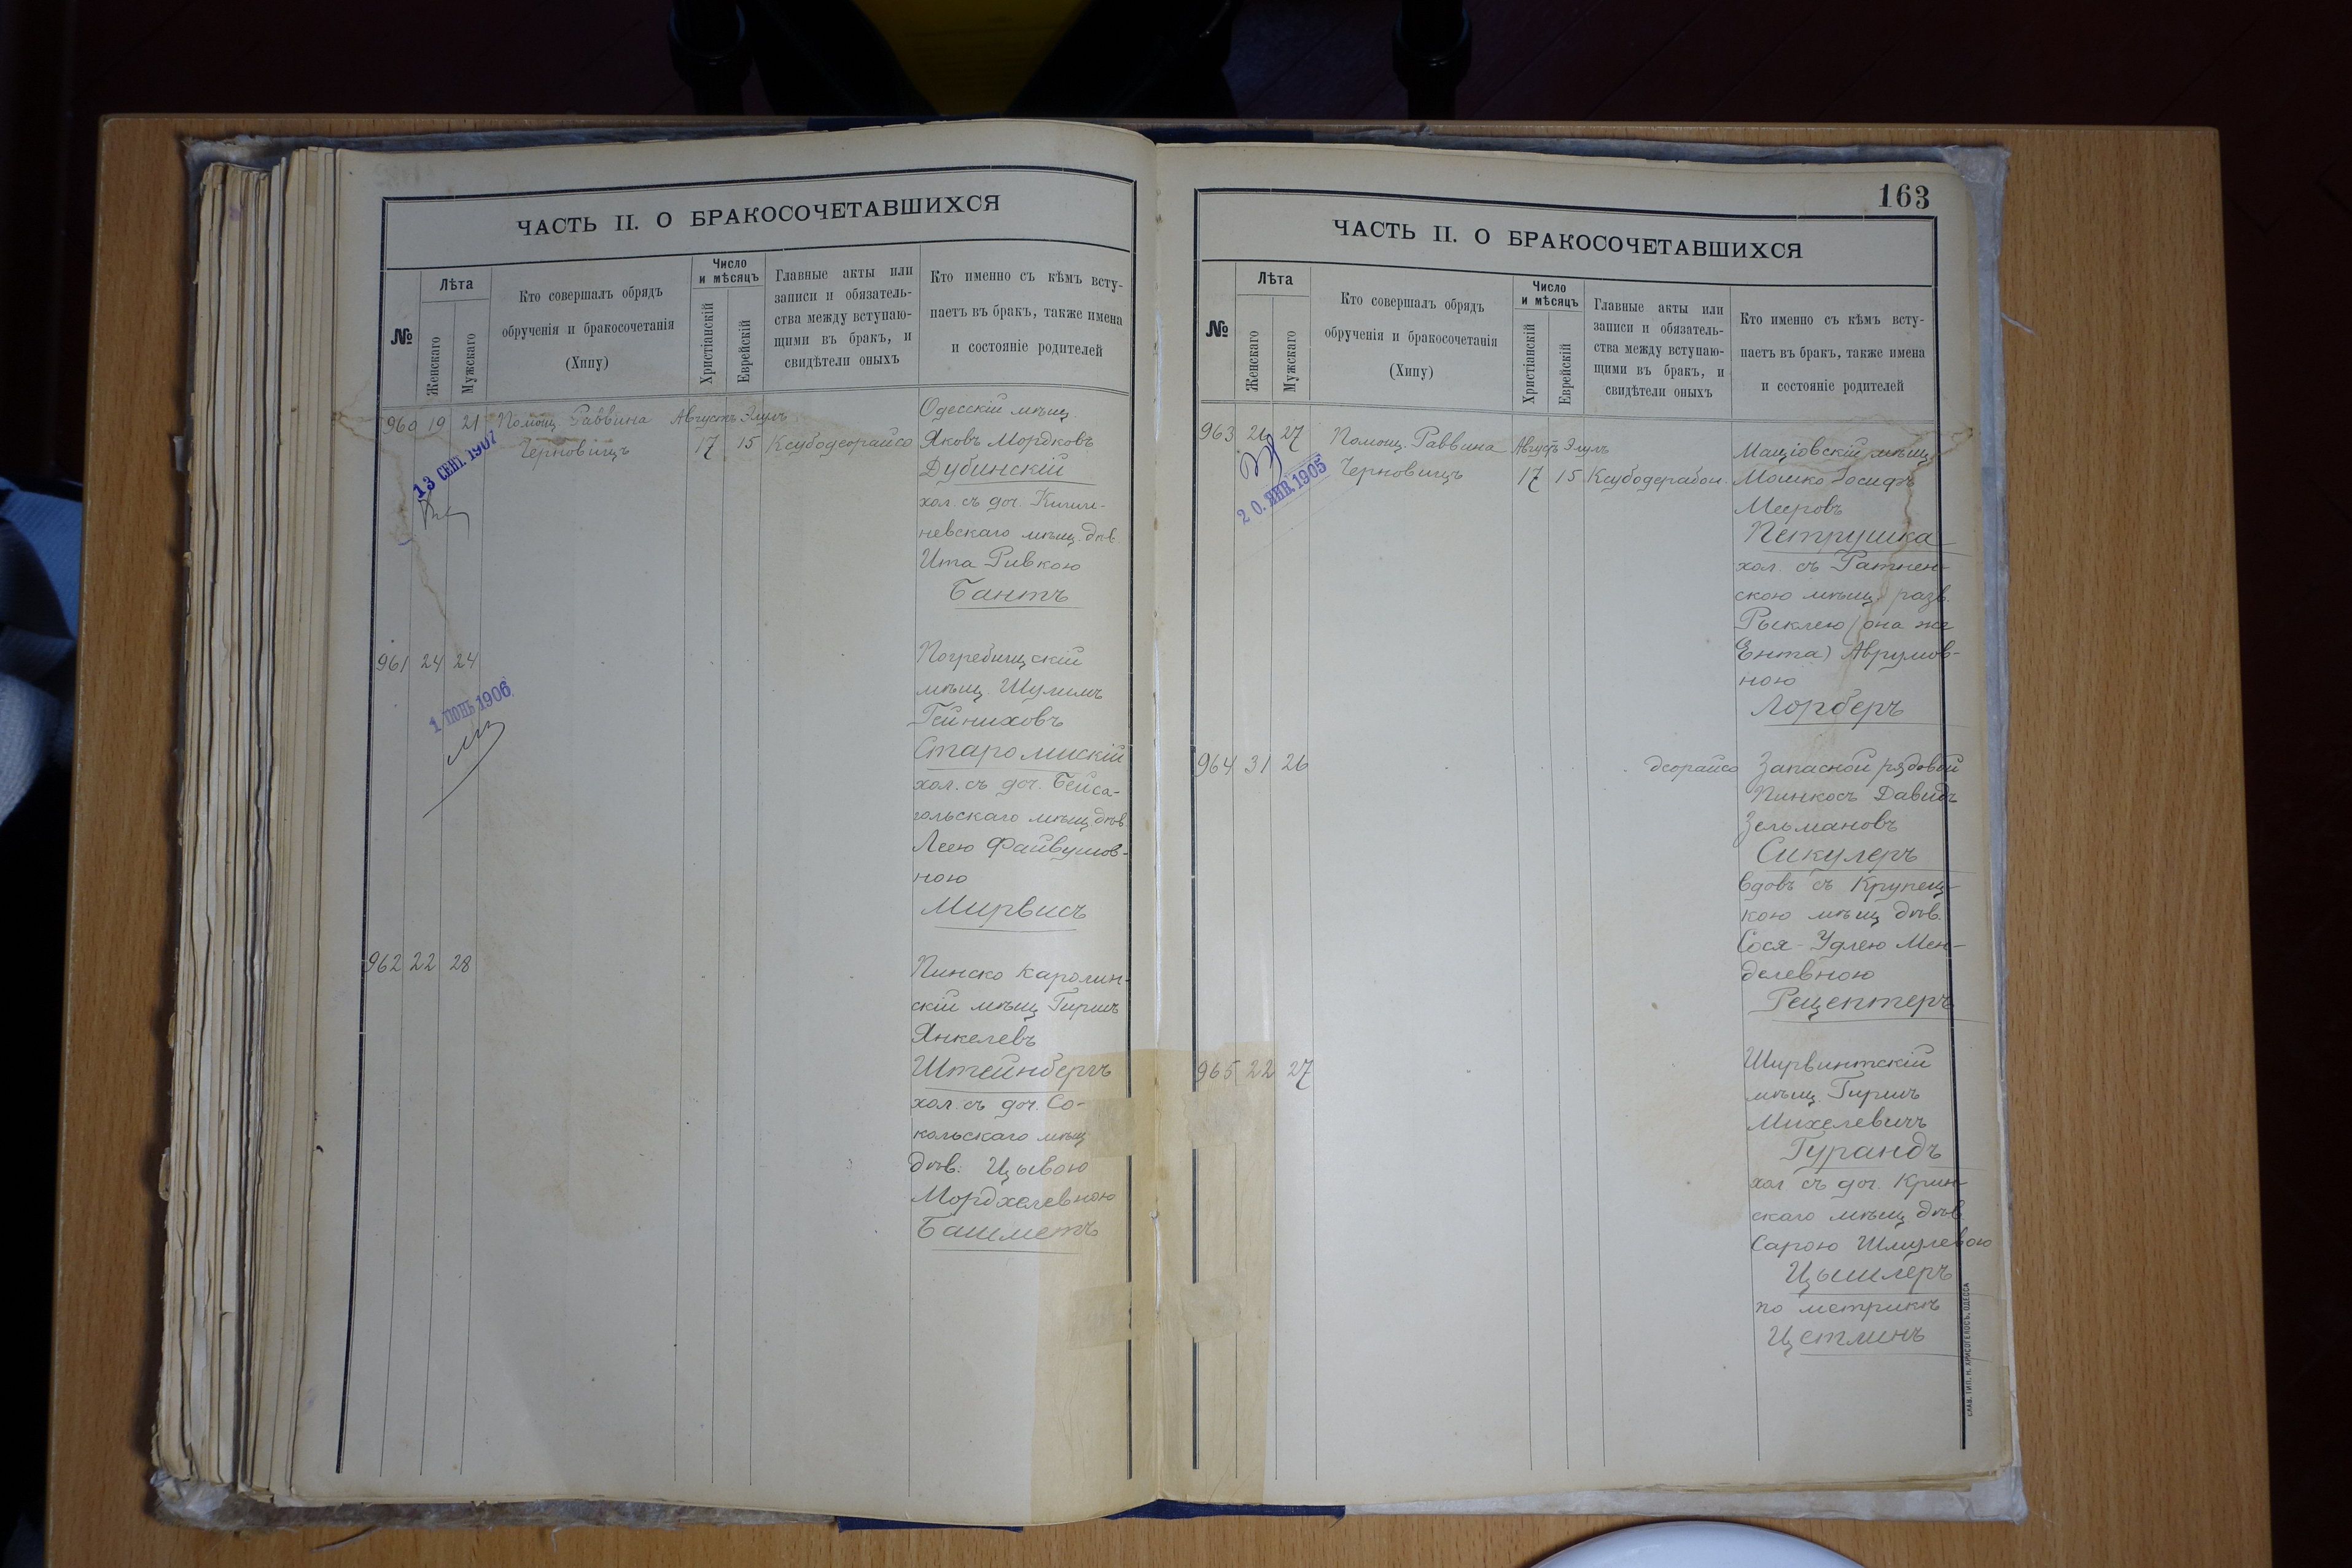 ЧАСТЬ II. О БРАКОСОЧЕТАВШИХСЯ
№
Лѣта
Женскаго
Мужскаго
Кто совершалъ обрядъ
обрученія и бракосочетанія
(Хипу)
Число
и мѣсяцъ
Христіанскій
Еврейскій
Главные акты или
записи и обязатель-
ства между вступаю-
щими въ бракъ, и
свидѣтели оныхъ
Кто именно съ кѣмъ всту-
паетъ въ бракъ, также имена
и состояніе родителей
960 19 21 Помощ. Раввина Августъ Элулъ
Черновицъ 17 15 Ксубодеорайсо
13 СЕНТ. 1907
Одесскій мѣщ.
Яковъ Мордковъ
Дубинскій
хол. съ доч. Киши-
невскаго мѣщ. дѣв.
Ита Ривкою
Бантъ
961 24 24
1 ІЮНЬ 1906
Погребищскій
мѣщ. Шулимъ
Гейниховъ
Старомискій
хол. съ доч. Бейса-
гольскаго мѣщ. дѣв.
Леею Файвушов-
ною
Мирвисъ
962 22 28
Пинско Каролин-
скій мѣщ Гиршъ
Янкелевъ
Штейнбергъ
хол. съ доч. Со-
кольскаго мѣщ
дѣв. Цывою
Мордхелевною
Башметъ
163
ЧАСТЬ II. О БРАКОСОЧЕТАВШИХСЯ
№
Лѣта
Женскаго
Мужскаго
Кто совершалъ обрядъ
обрученія и бракосочетанія
(Хипу)
Число
и мѣсяцъ
Христіанскій
Еврейскій
Главные акты или
записи и обязатель-
ства между вступаю-
щими въ бракъ, и
свидѣтели оныхъ
Кто именно съ кѣмъ всту-
паетъ въ бракъ, также имена
и состояніе родителей
963 26 27 Помощ. Раввина Август Элулъ
Черновицъ 17 15 Ксубодерабон.
20. ЯНВ. 1905
Маціовскій мѣщ
Мошко Іосифъ
Мееровъ
Петрушка
хол. съ Ратнен-
скою мѣщ. разв.
Рыклею (она же
Ента) Аврумов-
ною
Лорберъ
964 31 26 деорайсо
Запасной рядовой
Пинкосъ Давидъ
Зельмановъ
Сикулеръ
вдовъ съ Крупец-
кою мѣщ дѣв.
Сося-Удлею Мен-
делевною
Рецептеръ
965 22 27
Ширвинтскій
мѣщ. Гиршъ
Михелевичъ
Гурандъ
хол съ доч. Крин-
скаго мѣщ дѣв
Сарою Шмулевою
Цышлеръ
по метрикѣ
Цетлинъ
СЛАВ. ТИП. Н. ХРИСОГЕЛОСЪ, ОДЕССА